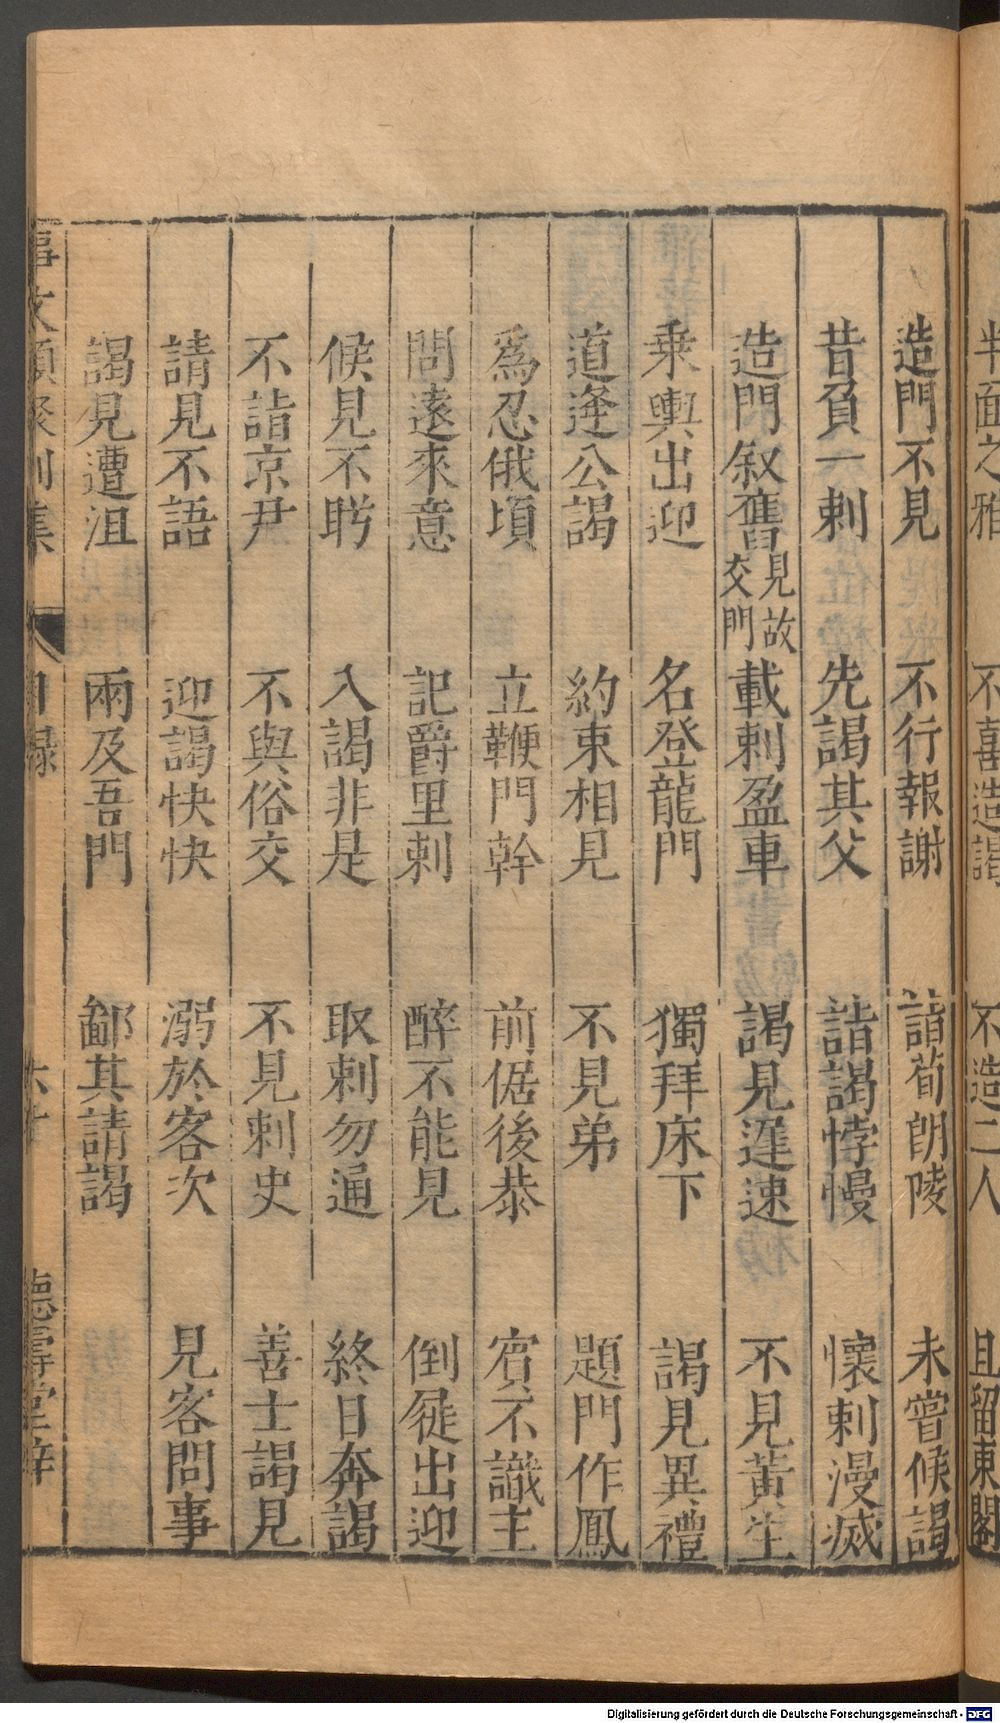 半面之雅　不喜造謁　不造二人　且留東閣
造門不見　不行報謝　詣荀朗陵　未嘗候謁
昔負一刺　先謁其父　詣謁悖慢　懷刺漫滅
造門叙舊見故交門　載刺盈車　謁見遲速　不見黃生
乘輿出迎　名登龍門　獨拜床下　謁見異禮
道逢公謁　約束相見　不見弟　題門作鳳
爲忍俄頃　立鞭門幹　前倨後恭　賓不識主
問遠來意　記爵里刺　醉不能見　倒屣出迎
候見不盻　入謁非是　取刺勿通　終日奔謁
不詣京尹　不與俗交　不見刺史　善士謁見
請見不語　迎謁怏怏　溺於客次　見客問事
謁見遭沮　兩及吾門　鄙其請謁
事文類聚別集　目録　六　德壽堂梓
Digitalisierung gefördert durch die Deutsche Forschungsgemeinschaft - DFG